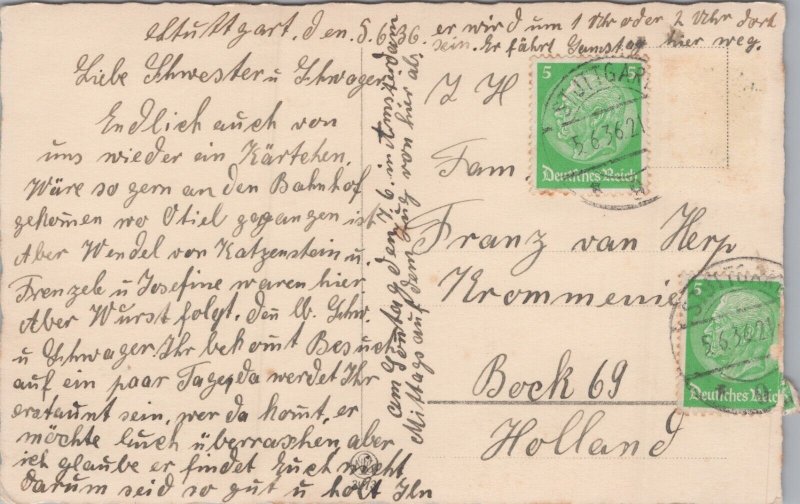 Stuttgart, den 5.6.36.
Liebe Schwester u Schwager
Endlich auch von
uns wieder ein Kärtchen.
Wäre so gern an den Bahnhof
gekommen wo Otiel gegangen ist
Aber Wendel von Katzenstein u.
Frenzele u Josefine waren hier
Aber Wurst folgt. Den lb. Schw.
u Schwager Ihr bekomt Besuch
auf ein paar Tage, da werdet Ihr
erstaunt sein, wer da komt, er
möchte Euch überraschen aber
ich glaube er findet Euch nicht
darum seid so gut u holt Ihn
am Sontag den 7.6. in Amsterdam
Mittags auf dem Zug von hier ab.
er wird um 1 Uhr oder 2 Uhr dort
sein. Er fährt Samstag hier weg.
I H
Fam.
Franz van Herp
Krommenie
Bock 69
Holland
5 5
STUTTGART
5.6.36.21
Deutsches Reich
5
STUTTGART
5.6.36.21
Deutsches Reich